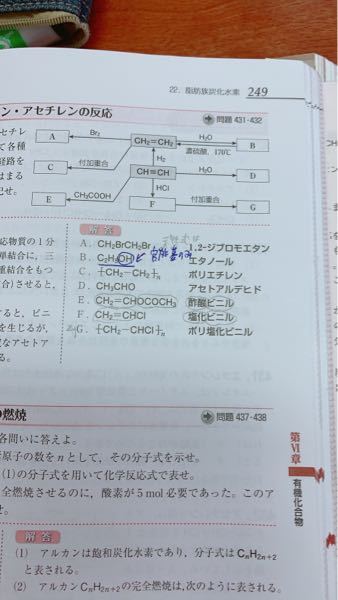 22. 脂肪族炭化水素 249
ン・アセチレンの反応
問題 431・432
セチレ
て各種
経路を
はまる
記せ。
A Br₂ CH₂=CH₂ H₂O B
濃硫酸, 170℃
C 付加重合 H₂ H₂O D
CH≡CH
E CH₃COOH HCl
F 付加重合 G
解答
応物質の1分
単結合に，三
重結合をもつ
合)させると，
すると，ビニ
を生じるが，
定なアセトア
A. CH₂BrCH₂Br 1,2-ジブロモエタン
B. C₂H₅OH 官能基のみ エタノール
C. ┼CH₂-CH₂┼n ポリエチレン
D. CH₃CHO アセトアルデヒド
E. CH₂=CHOCOCH₃ 酢酸ビニル
F. CH₂=CHCl 塩化ビニル
G. ┼CH₂-CHCl┼n ポリ塩化ビニル
の燃焼
問題 437・438
各問いに答えよ。
原子の数をnとして，その分子式を示せ。
(1)の分子式を用いて化学反応式で表せ。
全燃焼させるのに，酸素が5mol必要であった。このア
せ。
解答
(1) アルカンは飽和炭化水素であり，分子式はCnH2n+2
と表される。
(2) アルカンCnH2n+2の完全燃焼は，次のように表される。
第Ⅵ章
有機化合物